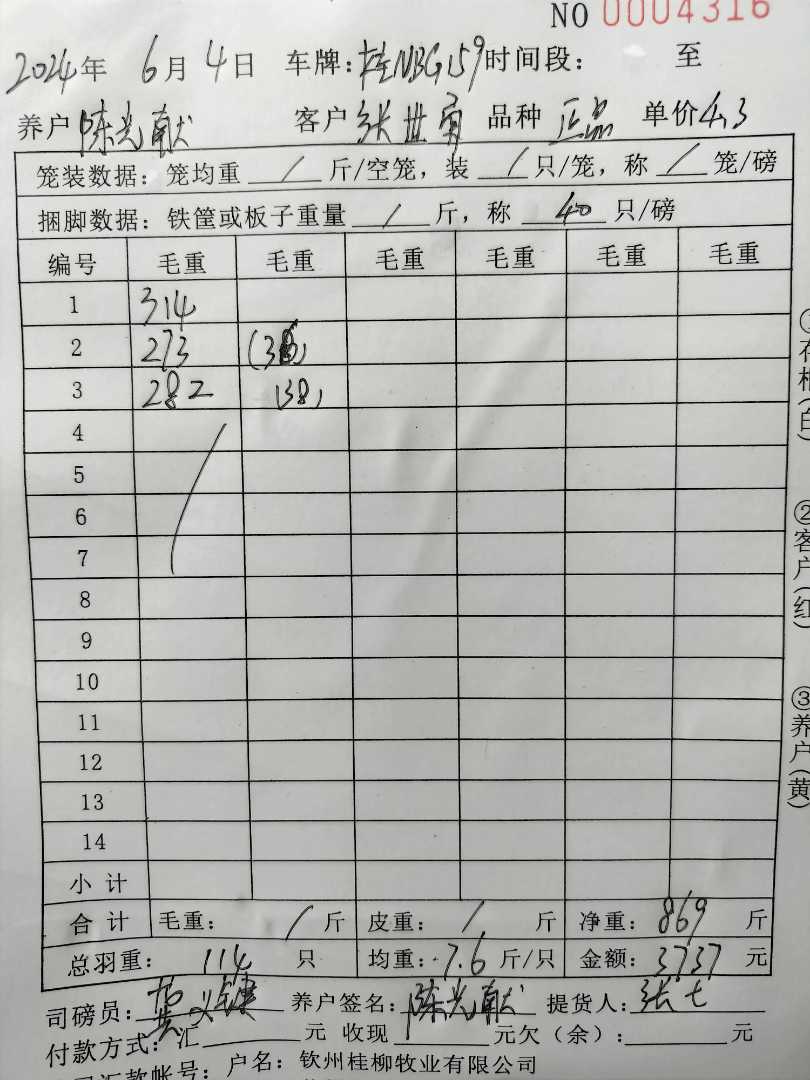 NO 0004316
2024年 6月4日 车牌:桂NBG159时间段: 至
养户陈光献 客户张世 品种 正品 单价4.3
笼装数据: 笼均重 / 斤/空笼, 装 / 只/笼, 称 / 笼/磅
捆脚数据: 铁筐或板子重量 / 斤, 称 40 只/磅
编号 毛重 毛重 毛重 毛重 毛重 毛重
1 314
2 273
3 282 (38)
4
5
6
7
8
9
10
11
12
13
14
小计
合计 毛重: / 斤 皮重: / 斤 净重: 869 斤
总羽重: 114 只 均重: 7.6 斤/只 金额: 3737 元
司磅员: 养户签名: 陈光献 提货人: 张七
付款方式: 汇 元 收现 元欠(余): 元
汇款帐号: 户名: 钦州桂柳牧业有限公司
(白)
②客户(红)
③养户(黄)